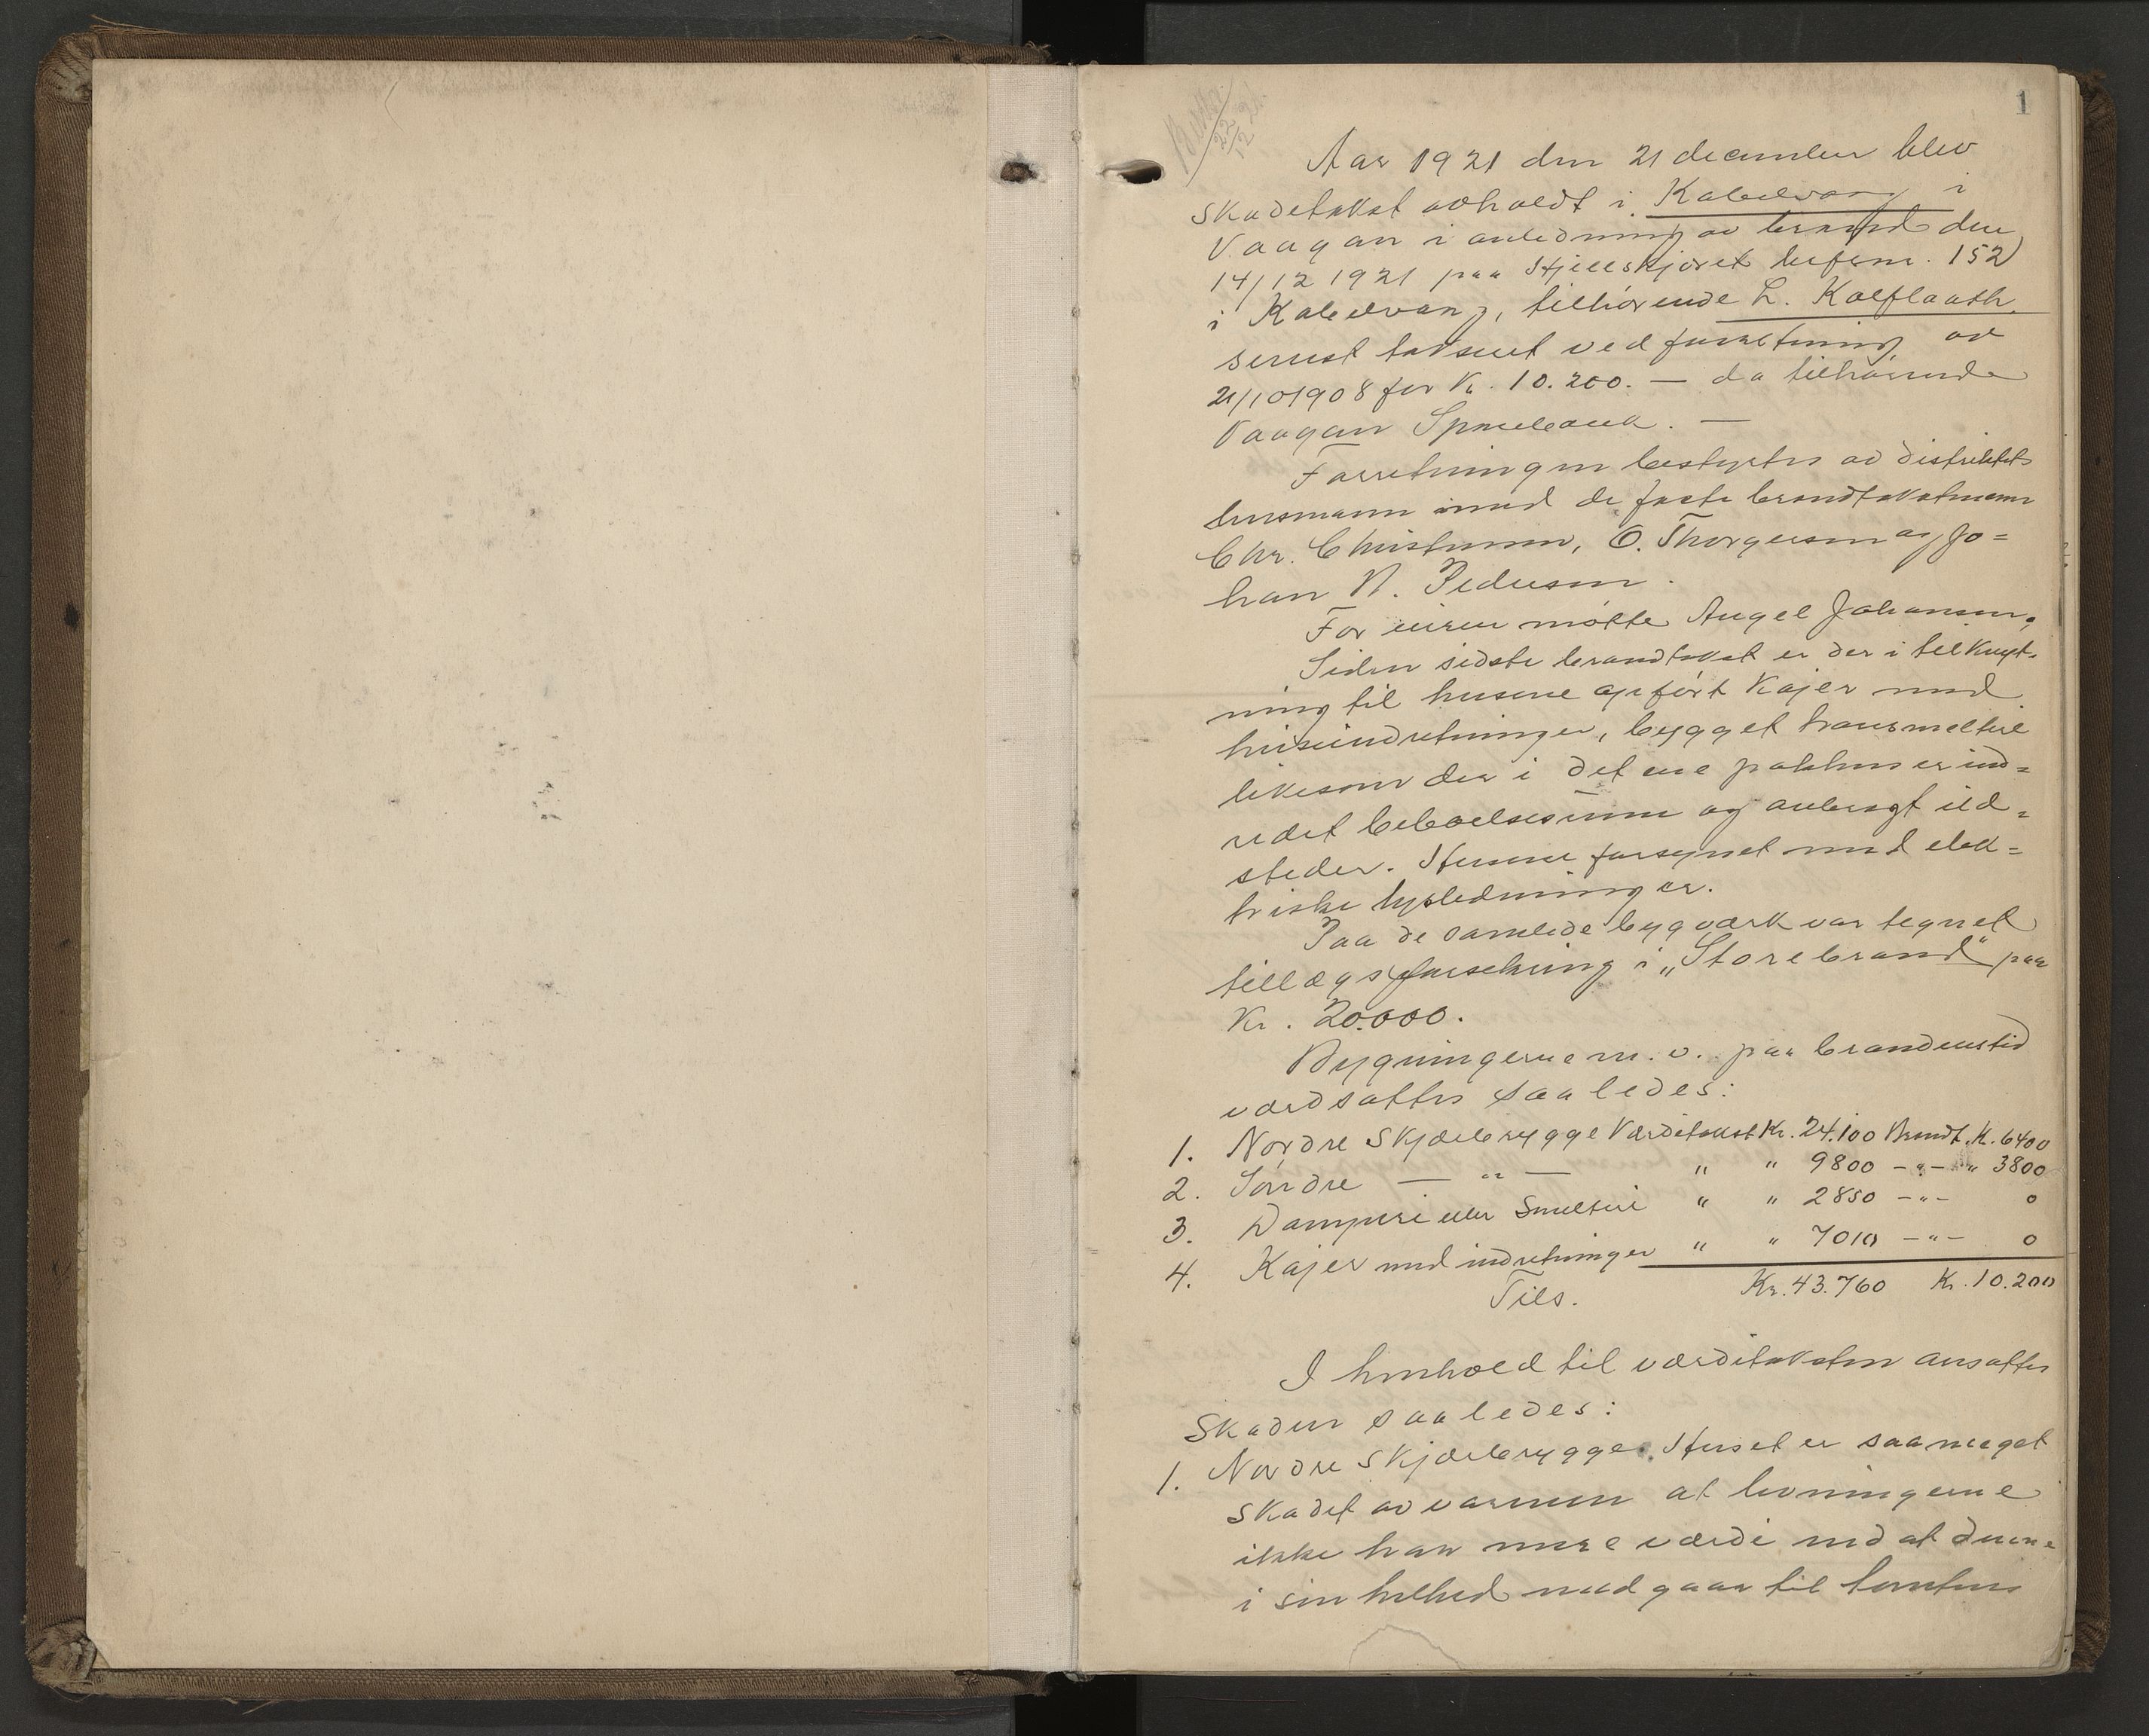 1
22/12 21
Aar 1921 den 21 december blev
skadetakst avholdt i Kabelvaag i
Vaagan i anledning av brand den
14/12 1921 paa Hjellskjæret brfsnr. 152
i Kabelvaag, tilhørende L. Kalflaath,
senest taksert ved forretning av
21/10 1908 for Kr. 10.200. — da tilhørende
Vaagan Sparebank. —
Forretningen bestyrtes av distriktets
lensmann med de faste brandtakstmænn
Chr. Christensen, O. Thorgersen og Jo=
han N. Pedersen.
For eieren møtte Angel Johansen.
Siden sidste brandtakst er der i tilknyt-
ning til husene opført Kajer med
huseindretninger, bygget transmelteri
likesom der i det ene pakhus er ind=
redet beboelsesrum og anbragt ild=
steder. Husene forsynet med elek=
triske lysledninger.
Paa de samlede bygværk var tegnet
tillægsforsekring i „Storebrand" paa
Kr. 20.000.
Bygningerne m. v. paa brandenstid
værdsattes saaledes:
1. Nordre Skjærbrygge Værditakst Kr. 24.100 Brandt. K. 6400
2. Søndre — " — " " 9800 — " — " 3800
3. Damperi eller Smelteri " " 2850 — " — 0
4. Kajer med indretninger " " 7010 — " — 0
Tils. Kr. 43.760 Kr. 10.200
I henhold til værditaksten ansattes
Skaden saaledes:
1. Nordre Skjærbrygge. Huset er saa meget
skadet av varmen at levningerne
ikke har mere værdi end at denne
i sin helhed medgaar til tomtens